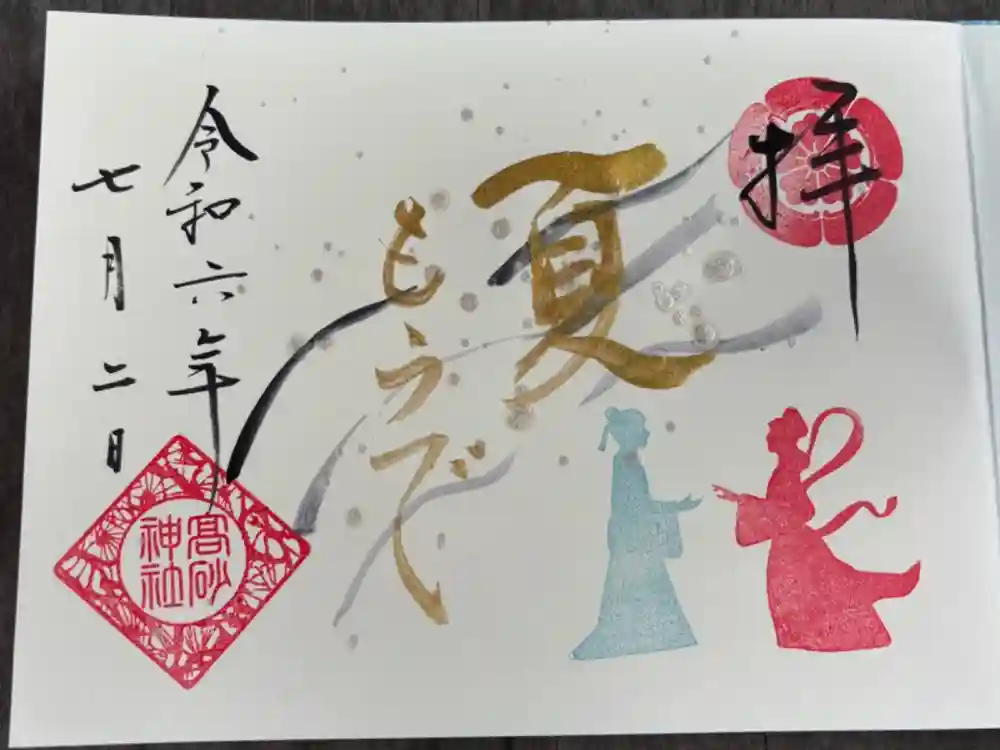 拝
夏
もうで
令和六年
七月二日
高砂
神社